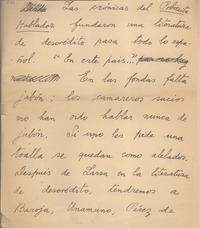 Las crónicas del Pobrecito
Hablador fundaron una literatura
de descrédito para todo lo espa-
ñol. "En este país..."
En las fondas falta
jabón; los camareros sucios
no han oído hablar nunca de
jabón. Si uno les pide una
toalla se quedan como alelados.
Después de Larra en la literatura
de descrédito, tendremos a
Baroja, Unamuno, Pérez de